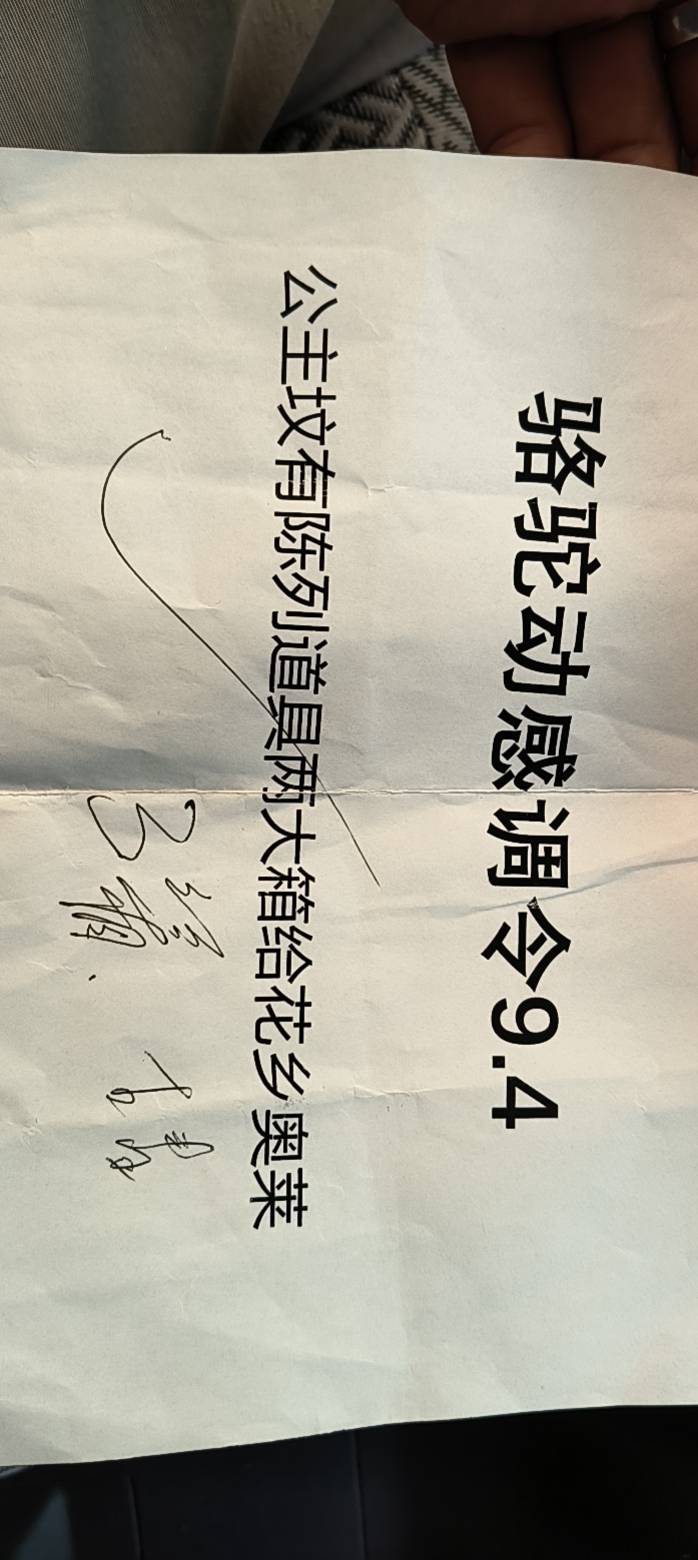 骆驼动感调令9.4
公主坟有陈列道具两大箱给花乡奥莱